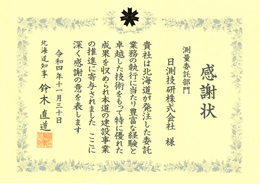 感謝状
測量委託部門
日測技研株式会社 様
貴社は北海道が発注した委託
業務の執行に当たり豊富な経験と
卓越した技術をもって特に優れた
成果を収められ本道の建設事業
の推進に寄与されました ここに
深く感謝の意を表します
令和四年十一月三十日
北海道知事 鈴木直道